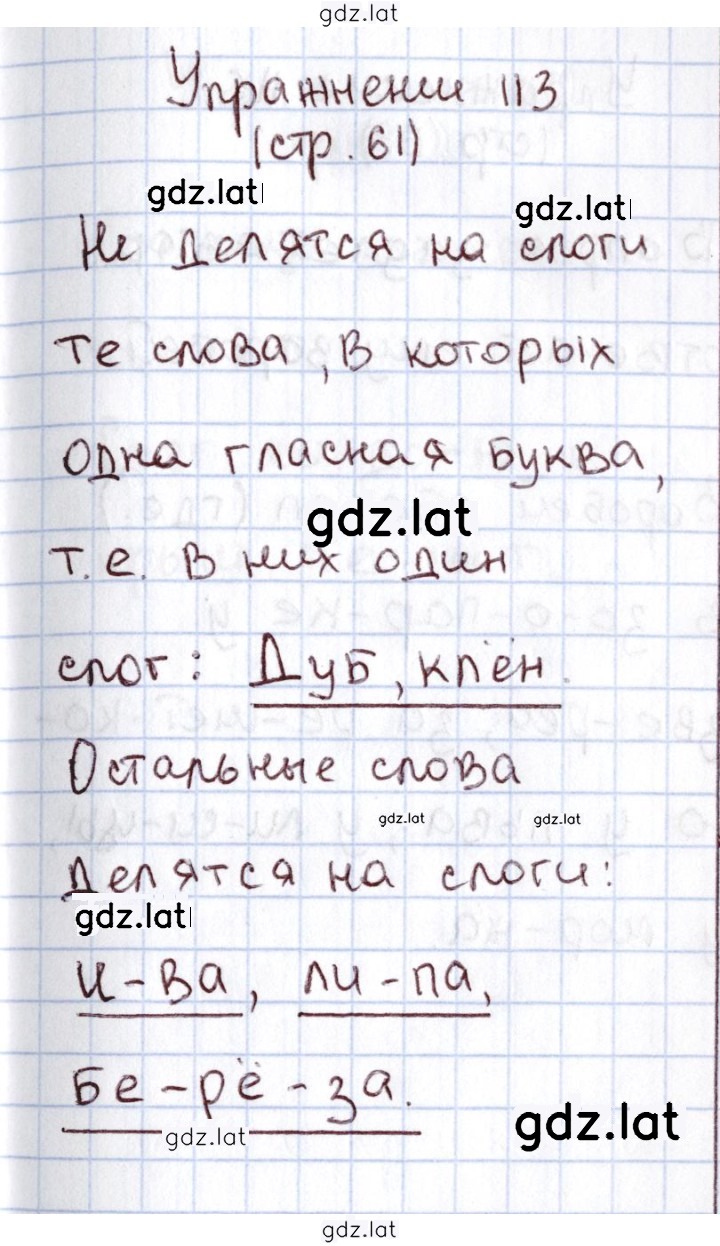 gdz.lat
Упражнении 113
(стр. 61)
gdz.lat
gdz.lat
Не делятся на слоги
те слова, в которых
одна гласная буква,
gdz.lat
т.е. в них один
слог: Дуб, клён.
Остальные слова
gdz.lat gdz.lat
делятся на слоги:
gdz.lat
и-ва, ли-па,
бе-рё-за.
gdz.lat
gdz.lat
gdz.lat